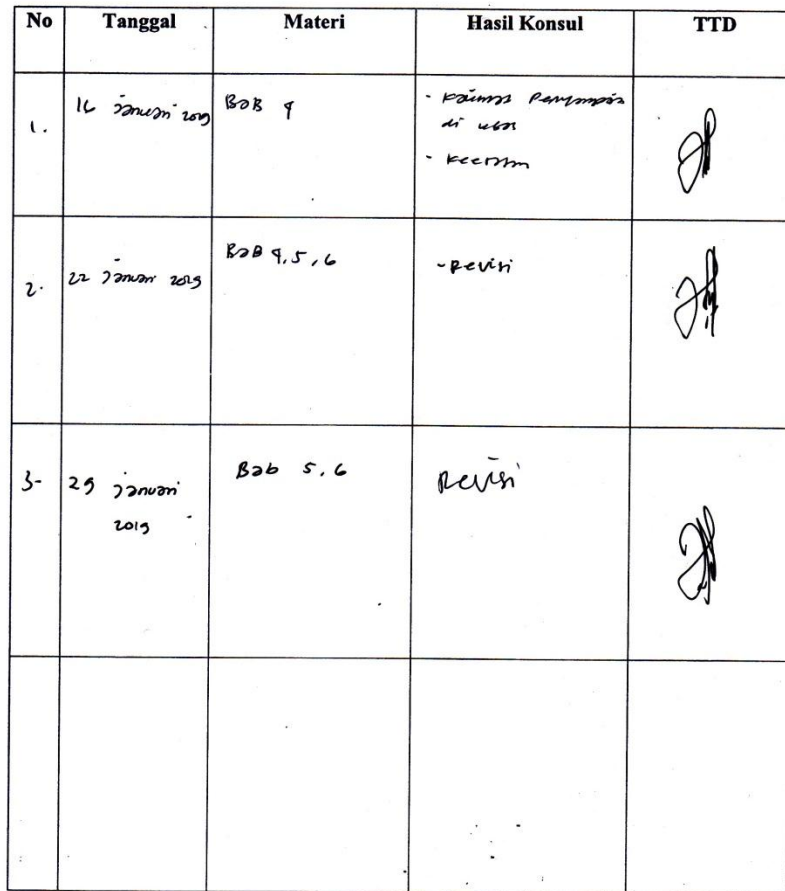 No Tanggal Materi Hasil Konsul TTD
1. 16 Januari 2019 BaB 4 -
di
-
2. 22 Januari 2019 BaB 4,5,6 - Revisi
3- 29 Januari Bab 5,6 Revisi
2019